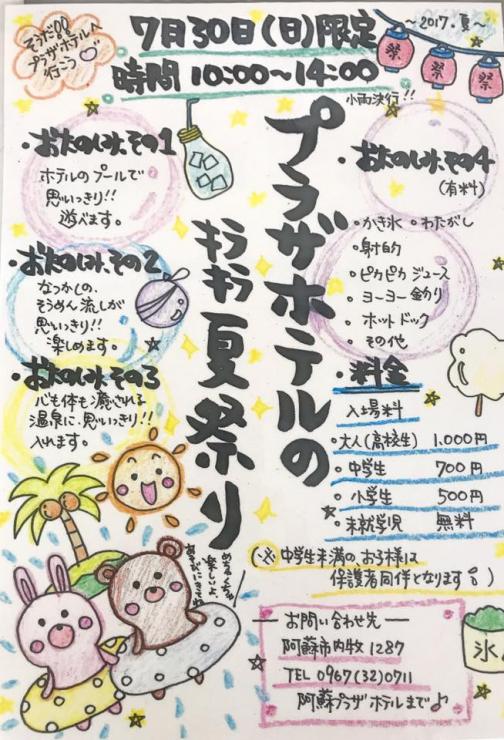 そうだ!!
プラザホテルへ
行こう
7月30日(日)限定
時間 10:00〜14:00
小雨決行!!
〜2017.夏〜
祭
祭
祭
プラザホテルの
キラキラ夏祭り
・お太のしみ、その1
ホテルのプールで
思いっきり!!
遊べます。
・お太のしみ、その2
なつかしの、
そうめん流しが
思いっきり!!
楽しめます。
・お太のしみ、その3
心も体も癒される
温泉に、思いっきり!!
入れます。
・お太のしみ、その4
(有料)
・かき氷 ・わたがし
・射的
・ピカピカジュース
・ヨーヨー釣り
・ホットドック
・その他
・料金
入場料
・大人(高校生) 1,000円
・中学生 700円
・小学生 500円
・未就学児 無料
(※中学生未満のお子様は
保護者同伴となります。)
めちゃくちゃ
楽しいよ、
あそびにきてね
お問い合わせ先
阿蘇市内牧1287
TEL 0967(32)0711
阿蘇プラザホテルまで♪
氷